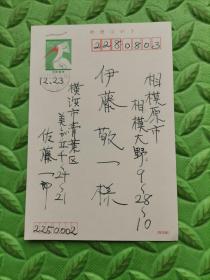 郵便はがき
2280803
相模原市
相模大野9-28-10
伊藤敬一様
12.23
横浜市青葉区
美が丘
佐藤
2250002